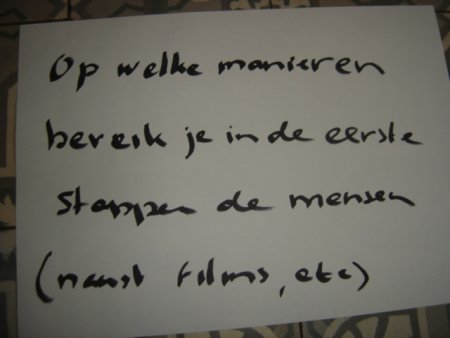 Op welke manieren
bereik je in de eerste
stappen de mensen
(naast films, etc)